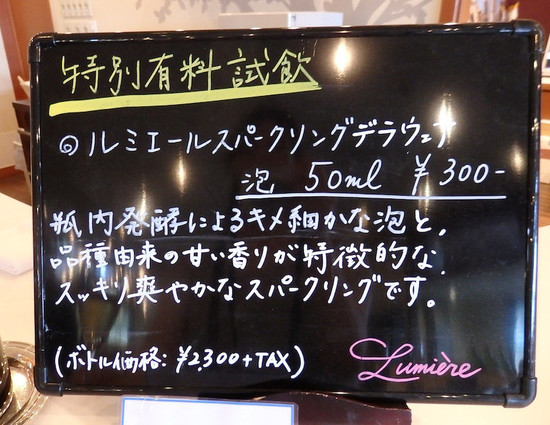 特別有料試飲
◎ルミエールスパークリングデラウェア
泡 50ml ¥300-
瓶内発酵によるキメ細かな泡と、
品種由来の甘い香りが特徴的な、
スッキリ爽やかなスパークリングです。
(ボトル価格:¥2,300+TAX)
Lumière